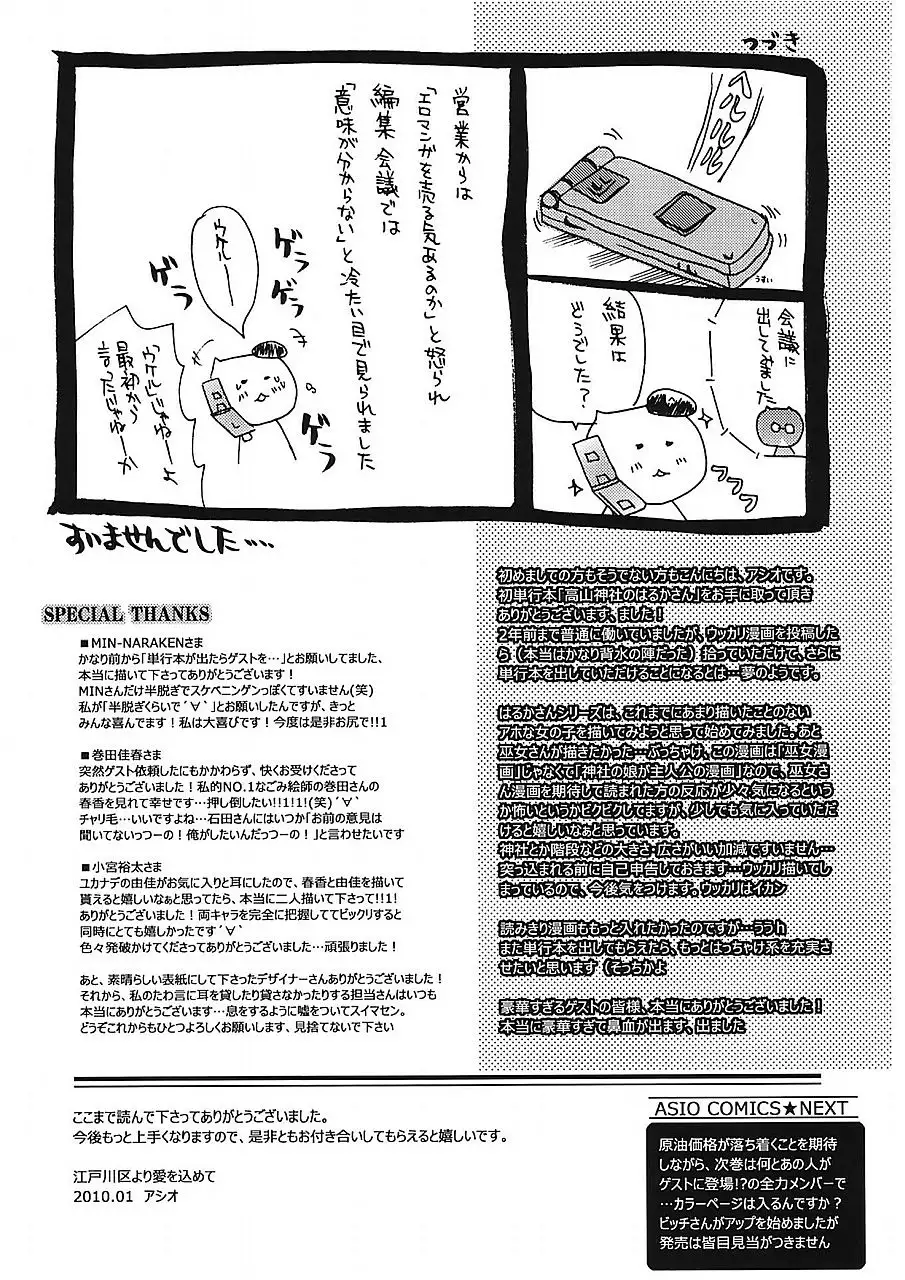 つづき
ヘルルル
うすい
会議に
出してみました
結果は
どうでした？
フフフ
営業からは
「エロマンガを売る気あるのか」と怒られ
編集会議では
「意味が分からない」と冷たい目で見られました
ウケルーー
ゲラ
ゲラ
ゲラ
ゲラ
「ウケル」じゃねーよ
最初から
言ったじゃねーか
すいませんでした…
初めましての方もそうでない方もこんにちは、アシオです。
初単行本「高山神社のはるかさん」をお手に取って頂き
ありがとうございます、ました！
2年前まで普通に働いていましたが、ウッカリ漫画を投稿した
ら（本当はかなり背水の陣だった）拾っていただけて、さらに
単行本を出していただけることになるとは…夢のようです。
はるかさんシリーズは、これまでにあまり描いたことのない
アホな女の子を描いてみようと思って始めてみました。あと
巫女さんが描きたかった…ぶっちゃけ、この漫画は「巫女漫
画」じゃなくて「神社の娘が主人公の漫画」なので、巫女さ
ん漫画を期待して読まれた方の反応が少々気になるという
か怖いというかビクビクしてますが、少しでも気に入っていただ
けると嬉しいなぁと思っています。
神社とか階段などの大きさ・広さがいい加減ですいません…
突っ込まれる前に自己申告しておきます…ウッカリ描いてし
まっているので、今後気をつけます。ウッカリはイカン
読みきり漫画ももっと入れたかったのですが…ううｈ
また単行本を出してもらえたら、もっとはっちゃけ系を充実さ
せたいと思います（そっちかよ
豪華すぎるゲストの皆様、本当にありがとうございました！
本当に豪華すぎて鼻血が出ます、出ました
SPECIAL THANKS
■MIN-NARAKENさま
かなり前から「単行本が出たらゲストを…」とお願いしてました、
本当に描いて下さってありがとうございます！
MINさんだけ半脱ぎでスケベニンゲンっぽくてすいません(笑)
私が「半脱ぎくらいで´∀`」とお願いしたんですが、きっと
みんな喜んでます！私は大喜びです！今度は是非お尻で!!1
■巻田佳春さま
突然ゲスト依頼したにもかかわらず、快くお受けくださって
ありがとうございました！私的NO.1なごみ絵師の巻田さんの
春香を見れて幸せです…押し倒したい!!1!1!(笑)´∀`
チャリ毛…いいですよね…石田さんにはいつか「お前の意見は
聞いてないっつーの！俺がしたいんだっつーの！」と言わせたいです
■小宮裕太さま
ユカナデの由佳がお気に入りと耳にしたので、春香と由佳を描いて
貰えると嬉しいなぁと思ってたら、本当に二人描いて下さって!!1!
ありがとうございました！両キャラを完全に把握しててビックリすると
同時にとても嬉しかったです´∀`
色々発破かけてくださってありがとうございました…頑張りました！
あと、素晴らしい表紙にして下さったデザイナーさんありがとうございました！
それから、私のたわ言に耳を貸したり貸さなかったりする担当さんはいつも
本当にありがとうございます…息をするように嘘をついてスイマセン。
どうぞこれからもひとつよろしくお願いします、見捨てないで下さい
ここまで読んで下さってありがとうございました。
今後もっと上手くなりますので、是非ともお付き合いしてもらえると嬉しいです。
江戸川区より愛を込めて
2010.01 アシオ
ASIO COMICS★NEXT
原油価格が落ち着くことを期待
しながら、次巻は何とあの人が
ゲストに登場!?の全力メンバーで
…カラーページは入るんですか？
ビッチさんがアップを始めましたが
発売は皆目見当がつきません